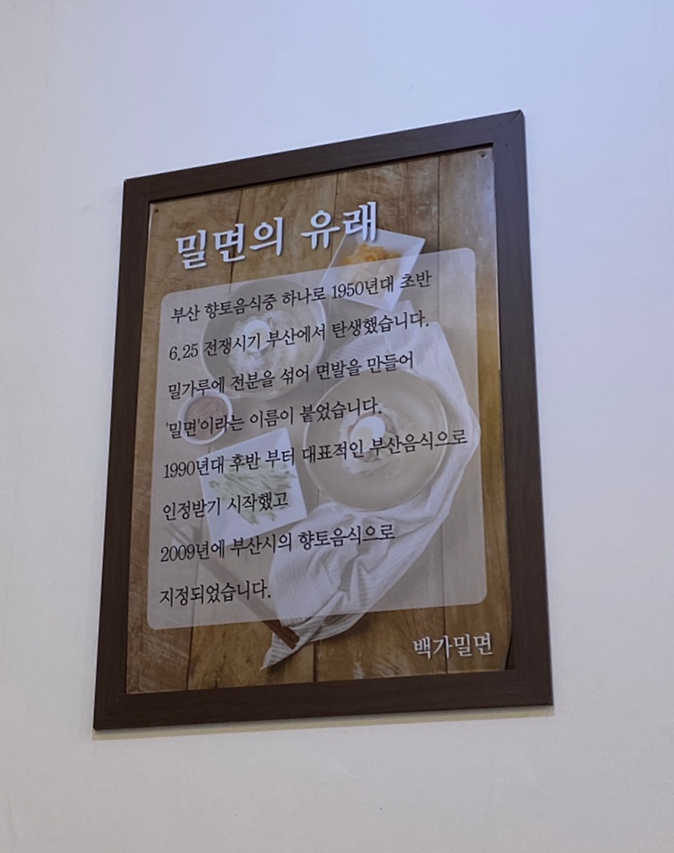 밀면의 유래
부산 향토음식중 하나로 1950년대 초반
6.25 전쟁시기 부산에서 탄생했습니다.
밀가루에 전분을 섞어 면발을 만들어
'밀면'이라는 이름이 붙었습니다.
1990년대 후반 부터 대표적인 부산음식으로
인정받기 시작했고
2009년에 부산시의 향토음식으로
지정되었습니다.
백가밀면